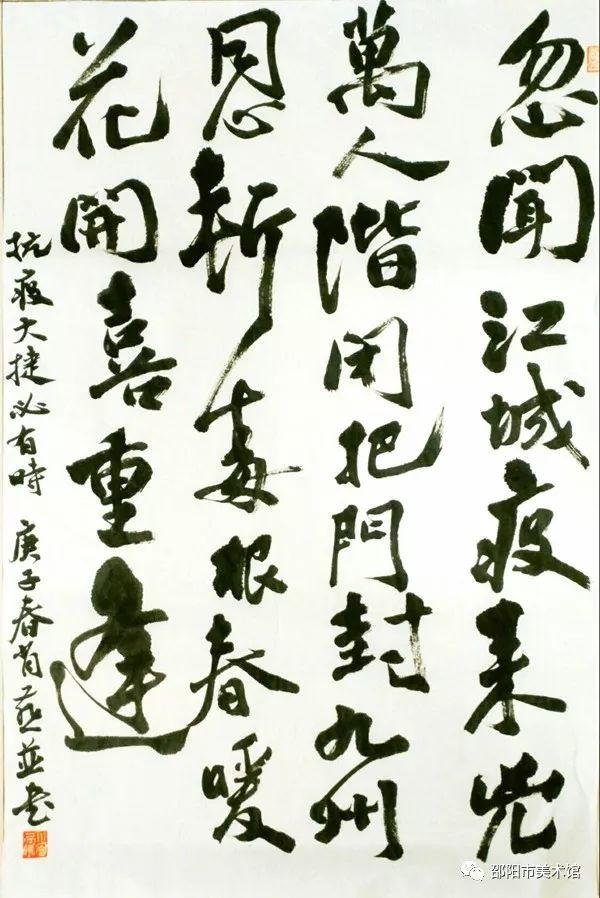 忽聞江城疫来兇
萬人階闭把門封九州
同心斬毒根春暖
花開喜重逢
抗疫大捷必有時 庚子春肖並书
邵阳市美术馆